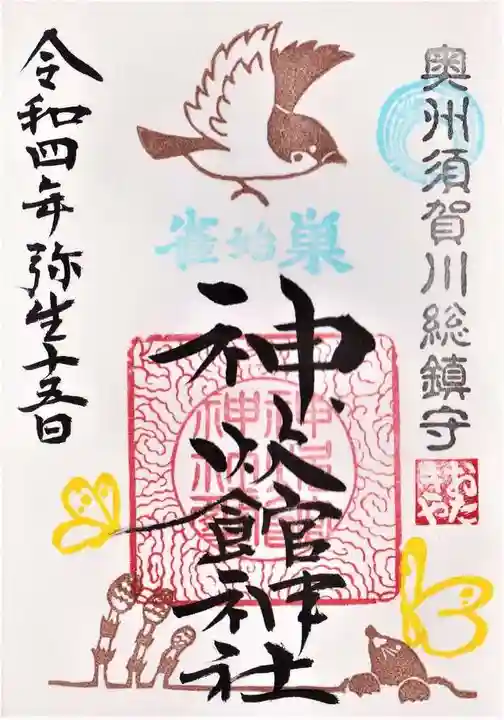 奥州須賀川総鎮守
おたきや
雀始巣
神炊館神社
令和四年弥生十五日